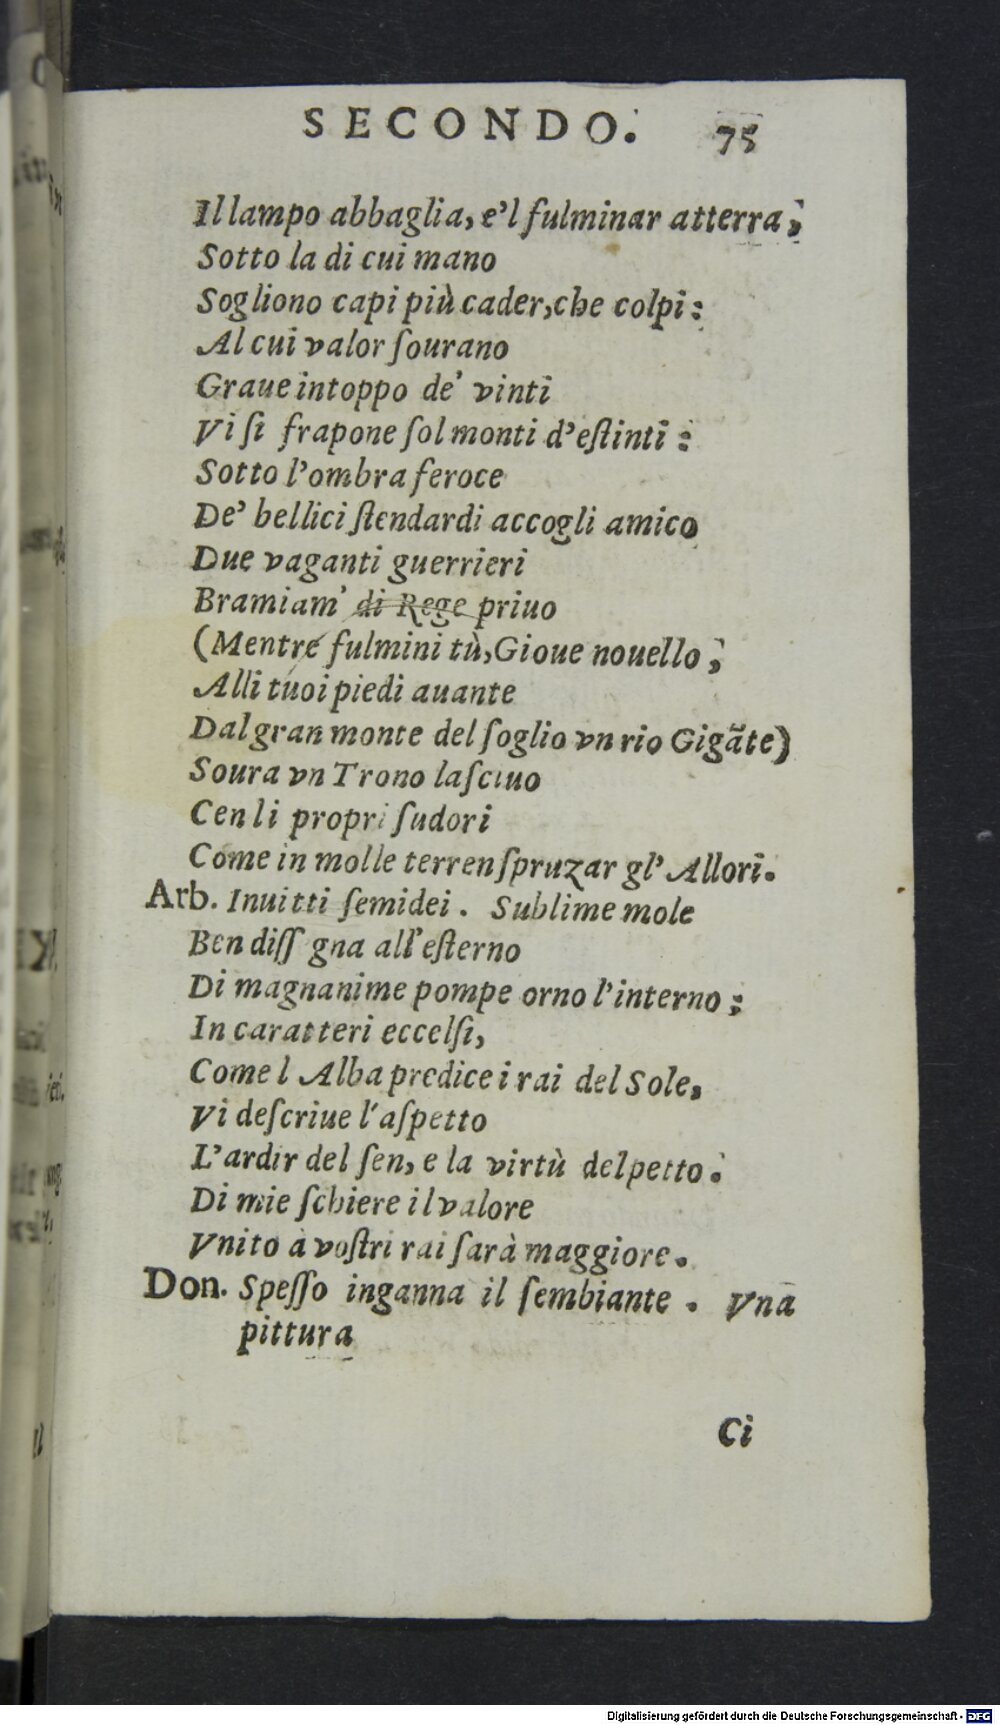 SECONDO. 75
Il lampo abbaglia, e'l fulminar atterra;
Sotto la di cui mano
Sogliono capi più cader, che colpi:
Al cui valor ſourano
Graue intoppo de' vinti
Vi ſi frapone ſol monti d'eſtinti:
Sotto l'ombra feroce
De' bellici ſtendardi accogli amico
Due vaganti guerrieri
Bramiam' di Rege priuo
(Mentre fulmini tù, Gioue nouello;
Alli tuoi piedi auante
Dal gran monte del ſoglio vn rio Gigãte)
Soura vn Trono laſciuo
Cen li propri ſudori
Come in molle terren ſpruzar gl' Allori.
Arb. Inuitti ſemidei. Sublime mole
Ben diſſ gna all'eſterno
Di magnanime pompe orno l'interno;
In caratteri eccelſi,
Come l Alba predice i rai del Sole,
Vi deſcriue l'aſpetto
L'ardir del ſen, e la virtù del petto.
Di mie ſchiere il valore
Vnito à voſtri rai ſarà maggiore.
Don. Speſſo inganna il ſembiante. Vna
pittura
Ci
Digitalisierung gefördert durch die Deutsche Forschungsgemeinschaft - DFG